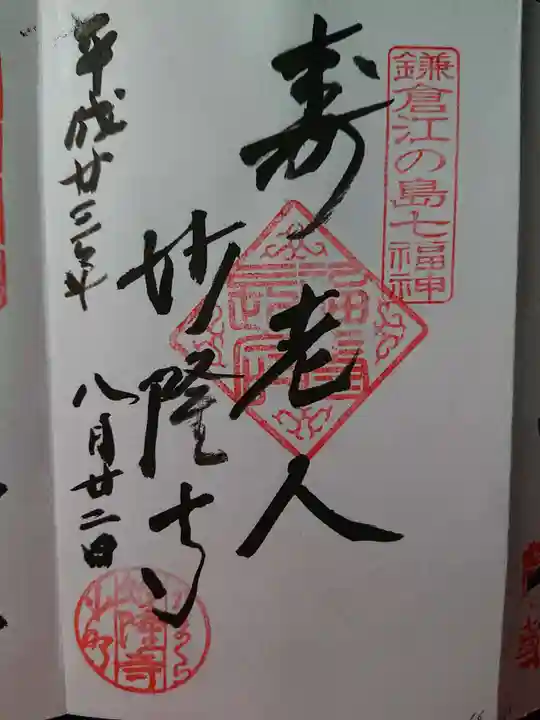 鎌倉江の島七福神
寿老人
妙隆寺
平成廿三年
八月廿二日
隆寺